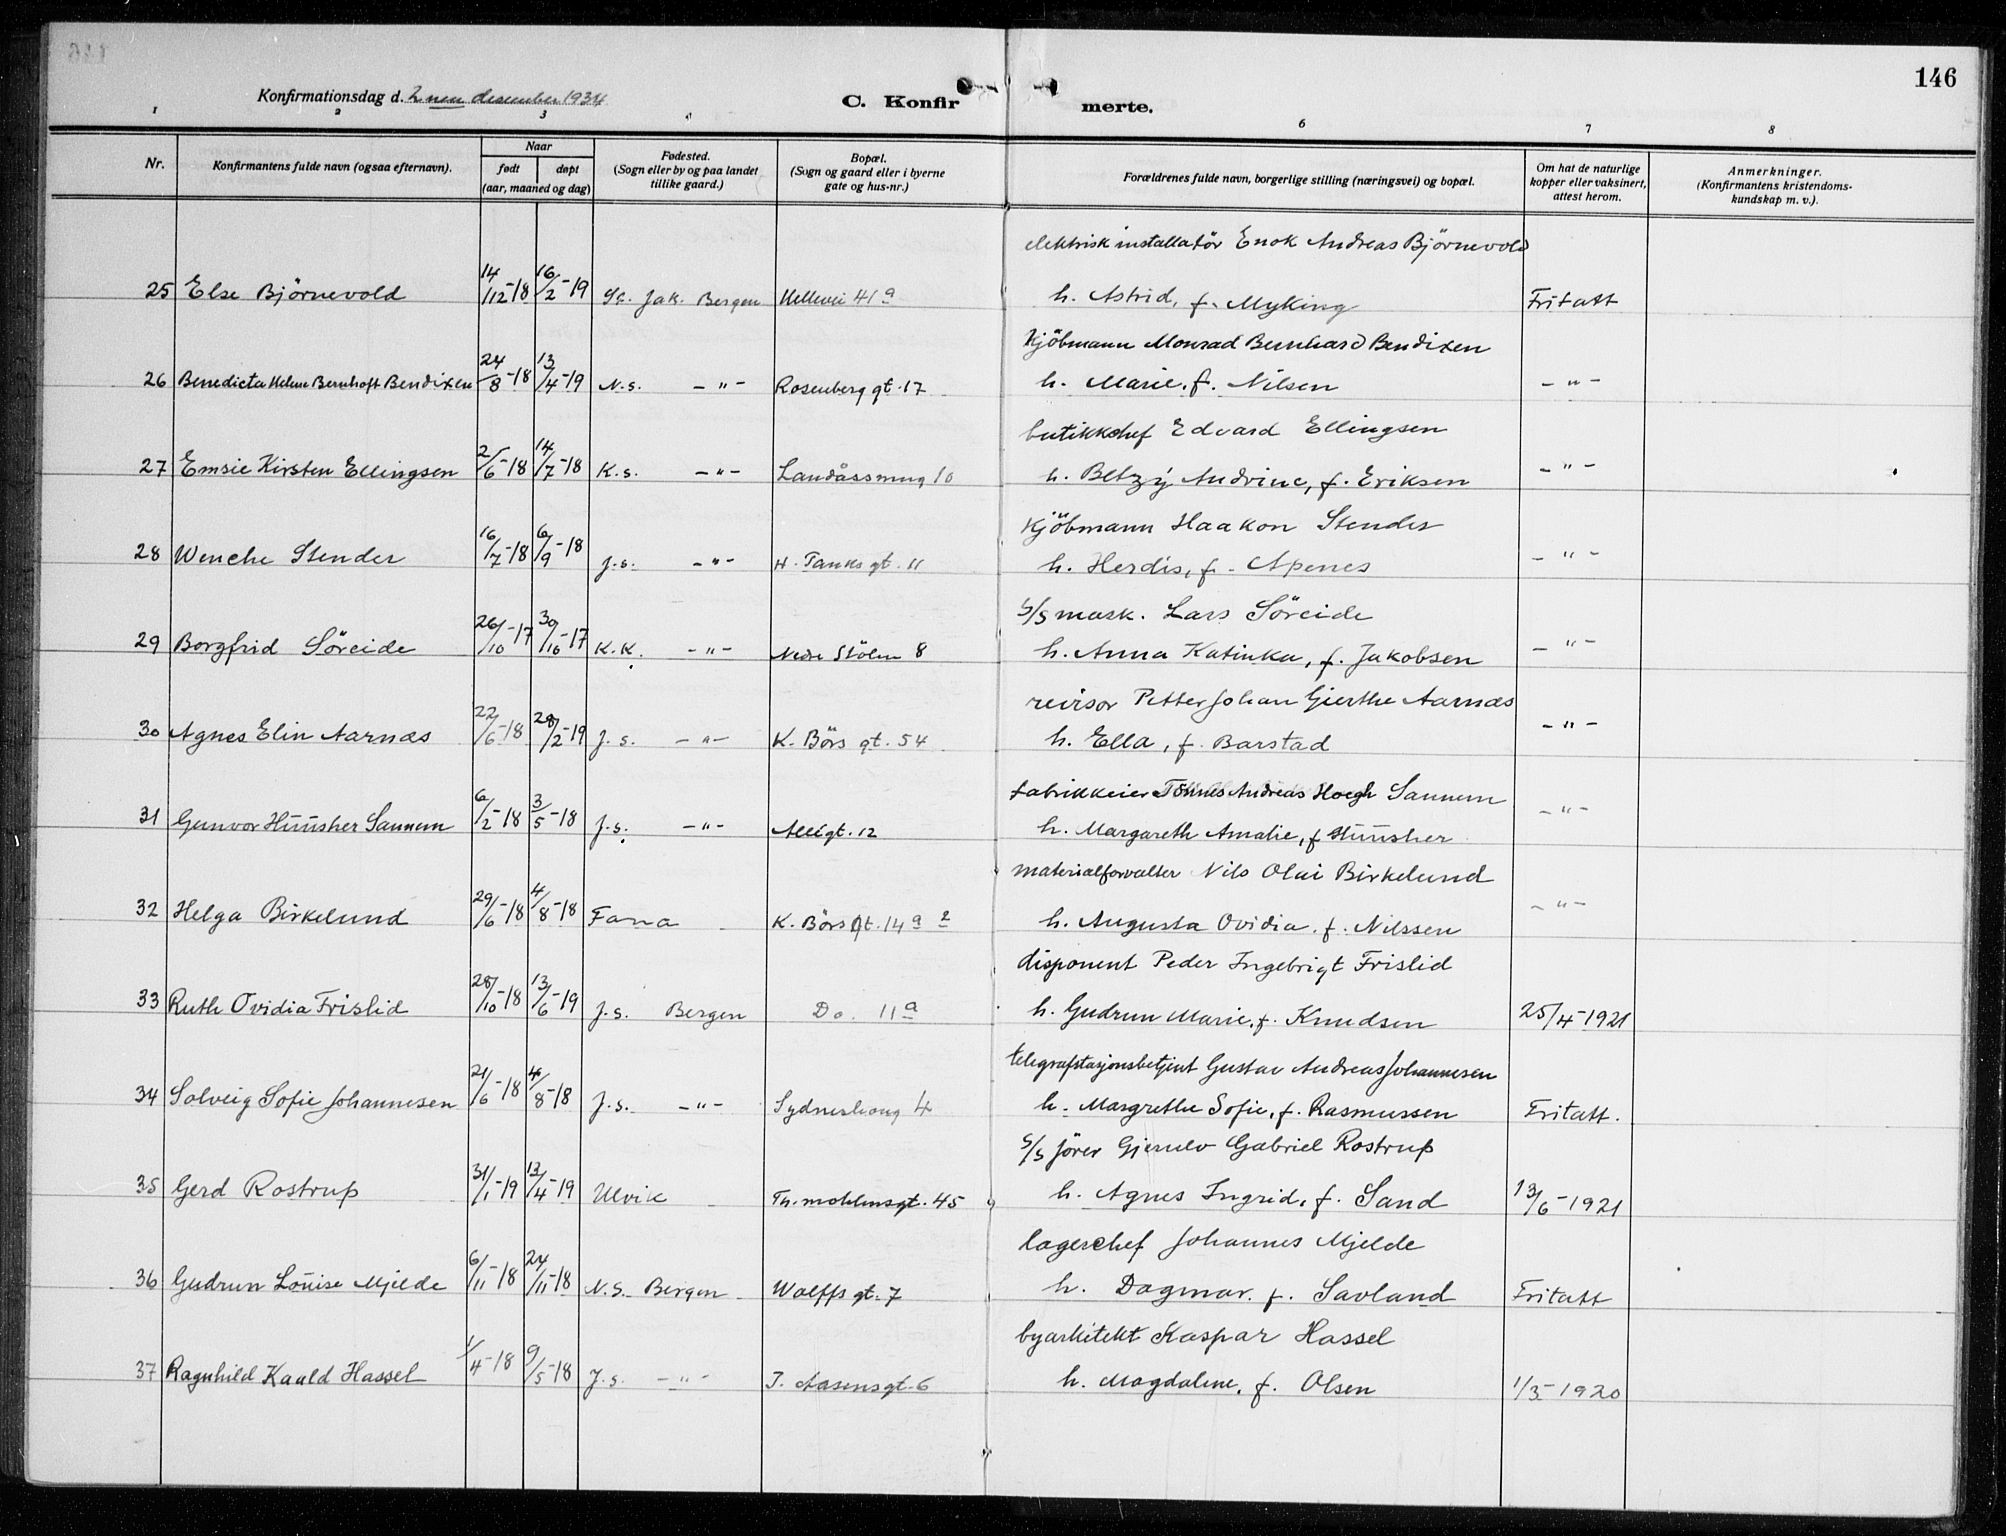 146
Konfirmationsdag d. 2nen desember 1934
C. Konfir merte.
1 2 3 4 6 7 8
Nr. Konfirmantens fulde navn (ogsaa efternavn). Naar født døpt (aar, maaned og dag) Fødested. (Sogn eller by og paa landet tillike gaard.) Bopæl. (Sogn og gaard eller i byerne gate og hus-nr.) Forældrenes fulde navn, borgerlige stilling (næringsvei) og bopæl. Om hat de naturlige kopper eller vaksinert, attest herom. Anmerkninger. (Konfirmantens kristendoms-kundskap m. v.).
elektrisk installatör Enok Andreas Björnevold
25 Else Björnevold 14/12-18 16/2-19 Sc. Jak. Bergen Hellevei 41a h. Astrid, f. Myking Fritatt
Kjöbmann Monrad Bernhard Bendixen
26 Benedicta Helene Bernhoft Bendixen 24/8-18 13/4-19 N.s. -"- Rosenberg gt. 17 h. Marie, f. Nilsen -"-
butikkchef Edvard Ellingsen
27 Emsie Kirsten Ellingsen 2/6-18 14/7-18 K.s. -"- Landåssmug 10 h. Betzÿ Andrine, f. Eriksen -"-
Kjöbmann Haakon Stender
28 Wenche Stender 16/7-18 6/9-18 J.s. -"- H. Tanks gt. 11 h. Herdis, f. Apenes -"-
S/S mask. Lars Söreide
29 Borgfrid Söreide 26/10-17 30/10-17 K.K. -"- Nedre Stölen 8 h. Anna Katinka, f. Jakobsen -"-
revisor Petter Johan Gierthe Aarnæs
30 Agnes Elin Aarnæs 22/6-18 28/2-19 J.s. -"- K. Börs gt. 54 h. Ella, f. Barstad -"-
fabrikkeier Tönnes Andreas Hoegh Sannem
31 Gunvor Hünsher Sannem 6/2-18 3/5-18 J.s. -"- Allégt. 12 h. Margareth Amalie, f. Hünsher -"-
materialforvalter Nils Olai Birkelund
32 Helga Birkelund 29/6-18 4/8-18 Fana K. Börs gt. 14a 2 h. Augusta Ovidia, f. Nilssen -"-
disponent Peder Ingebrigt Frislid
33 Ruth Ovidia Frislid 28/10-18 13/6-19 J.s. Bergen Do. 11a h. Gudrun Marie, f. Knudsen 25/4-1921
telegrafstasjonsbetjent Gustav Andreas Johannesen
34 Solveig Sofie Johannesen 21/6-18 4/8-18 J.s. -"- Sydneshaug 4 h. Margrethe Sofie, f. Rasmussen Fritatt.
S/S förer Gjerulv Gabriel Rostrup
35 Gerd Rostrup 31/1-19 13/4-19 Ulvik Th. mohlensgt. 45 h. Agnes Ingrid, f. Sand 13/6-1921
lagerchef Johannes Mjelde
36 Gudrun Louise Mjelde 6/11-18 24/11-18 N.S. Bergen Wolffs gt. 7 h. Dagmar, f. Savland Fritatt
byarkitekt Kaspar Hassel
37 Ragnhild Kauld Hassel 1/4-18 9/5-18 J.s. -"- I. Aasensgt. 6 h. Magdalene, f. Olsen 1/3-1920